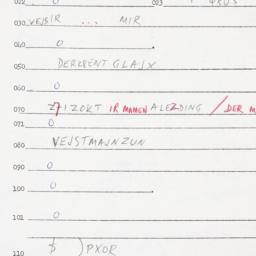 030 VEJSIR ... MIR
040 O
050 DERKENT GLAJX
060 O
070 ZIZOKT IR MAMEN ALEZDING / DER M
071 O
080 VEJSTMAJNZUN
090 O
100 O
101 O
110 $ ) PXOR